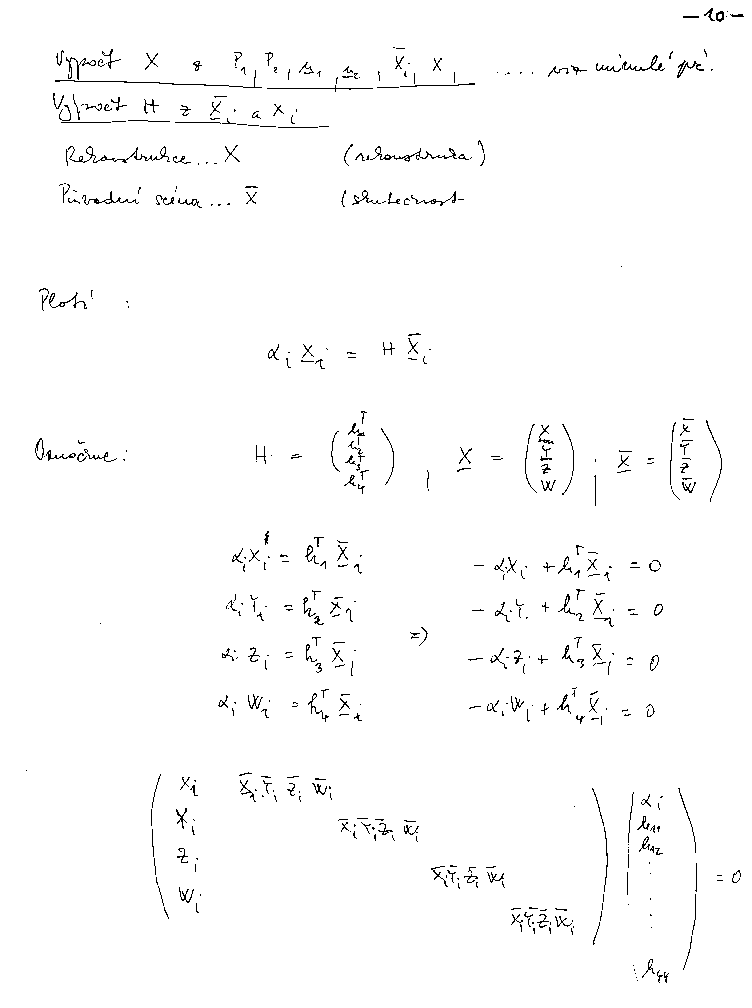 — 10 —
Výpočet X z P₁, P₂, u₁, u₂, X̄ᵢ, Xᵢ .... viz minulé př.
Výpočet H z X̄ᵢ a Xᵢ
Rekonstrukce... X (rekonstrukce)
Původní scéna... X̄ (skutečnost
Platí :
αᵢ Xᵢ = H X̄ᵢ
Označme: H = (h₁ᵀ h₂ᵀ h₃ᵀ h₄ᵀ) , X = (X Y Z W) ; X̄ = (X̄ Ȳ Z̄ W̄)
αᵢXᵢ = h₁ᵀ X̄ᵢ - αᵢXᵢ + h₁ᵀ X̄ᵢ = 0
αᵢ Yᵢ = h₂ᵀ X̄ᵢ - αᵢYᵢ + h₂ᵀ X̄ᵢ = 0
=>
αᵢ Zᵢ = h₃ᵀ X̄ᵢ - αᵢZᵢ + h₃ᵀ X̄ᵢ = 0
αᵢ Wᵢ = h₄ᵀ X̄ᵢ - αᵢWᵢ + h₄ᵀ X̄ᵢ = 0
Xᵢ X̄ᵢ Ȳᵢ Z̄ᵢ W̄ᵢ αᵢ
Yᵢ X̄ᵢ Ȳᵢ Z̄ᵢ W̄ᵢ h₁₁
h₁₂
Zᵢ X̄ᵢ Ȳᵢ Z̄ᵢ W̄ᵢ ⋮ = 0
Wᵢ X̄ᵢ Ȳᵢ Z̄ᵢ W̄ᵢ
h₄₄